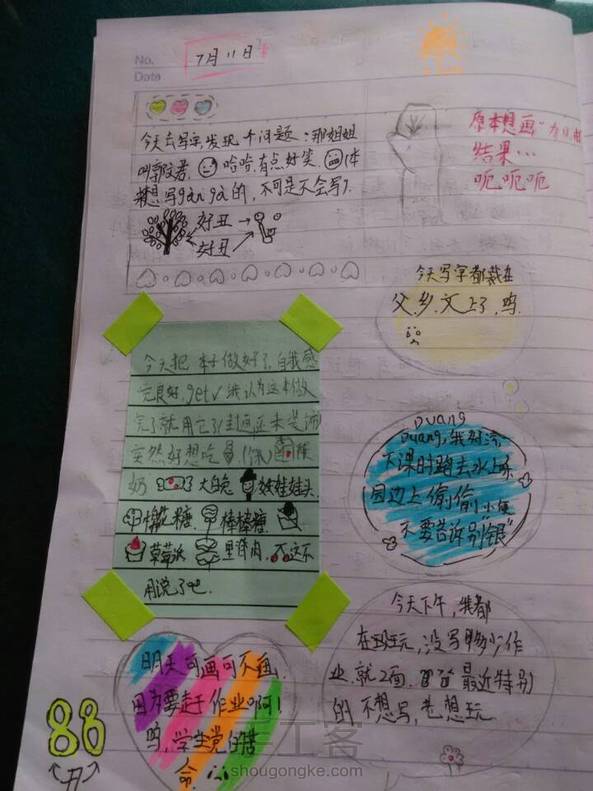 No.
Date
7月11日
今天去写字,发现个问题:那姐姐
叫郭政君. 哈哈.有点好笑. 体
想写gǎn gà的,可是不会写了.
好丑→
好丑
原本想画"
结果...
呃呃呃
今天写字都栽在
父.乡.文上了,呜.
今天把 本子做好了.自我感
觉良好,get✓我认为这本做
完了就用它了(封面还未装饰)
突然好想吃
奶 大白兔 娃娃头.
糖. 棒棒糖.
草莓派 里脊肉. 不
用说了吧.
Duang
Duang,我好
下课时跑去水上乐
园边上偷偷
不要告诉别
今天下午,我都
在玩,没写多少作
业.就2面. 最近特别
的,不想写,老想玩
明天可画可不画.
因为要赶作业啊!
呜,学生党的苦
命.
88
手工客
shougongke.com